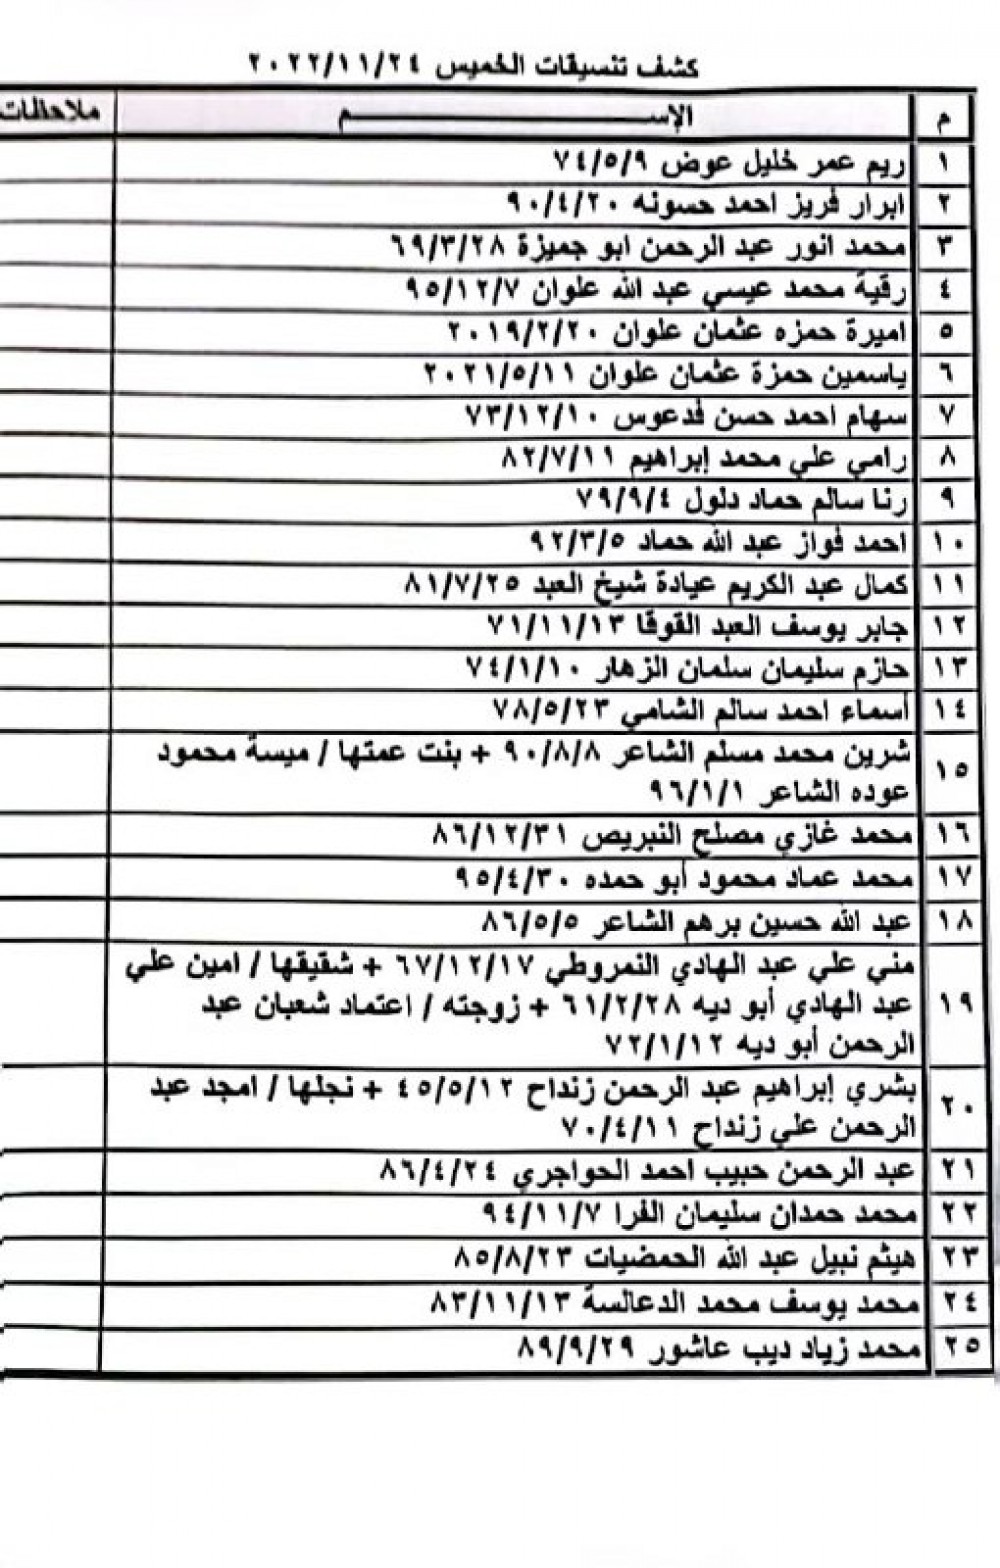 كشف تنسيقات الخميس ٢٠٢٢/١١/٢٤
م الإســـــــــــم ملاحظات
١ ريم عمر خليل عوض ٧٤/٥/٩
٢ ابرار فريز احمد حسونه ٩٠/٤/٢٠
٣ محمد انور عبد الرحمن ابو جميزة ٦٩/٣/٢٨
٤ رقية محمد عيسي عبد الله علوان ٩٥/١٢/٧
٥ اميرة حمزه عثمان علوان ٢٠١٩/٢/٢٠
٦ ياسمين حمزة عثمان علوان ٢٠٢١/٥/١١
٧ سهام احمد حسن قدعوس ٧٣/١٢/١٠
٨ رامي علي محمد إبراهيم ٨٢/٧/١١
٩ رنا سالم حماد دلول ٧٩/٩/٤
١٠ احمد فواز عبد الله حماد ٩٢/٣/٥
١١ كمال عبد الكريم عيادة شيخ العبد ٨١/٧/٢٥
١٢ جابر يوسف العبد القوقا ٧١/١١/١٣
١٣ حازم سليمان سلمان الزهار ٧٤/١/١٠
١٤ أسماء احمد سالم الشامي ٧٨/٥/٢٣
١٥ شرين محمد مسلم الشاعر ٩٠/٨/٨ + بنت عمتها / ميسة محمود
عوده الشاعر ٩٦/١/١
١٦ محمد غازي مصلح النبريص ٨٦/١٢/٣١
١٧ محمد عماد محمود أبو حمده ٩٥/٤/٣٠
١٨ عبد الله حسين برهم الشاعر ٨٦/٥/٥
١٩ مني علي عبد الهادي النمروطي ٦٧/١٢/١٧ + شقيقها / امين علي
عبد الهادي أبو ديه ٦١/٢/٢٨ + زوجته / اعتماد شعبان عبد
الرحمن أبو ديه ٧٢/١/١٢
٢٠ بشري إبراهيم عبد الرحمن زنداح ٤٥/٥/١٢ + نجلها / امجد عبد
الرحمن علي زنداح ٧٠/٤/١١
٢١ عبد الرحمن حبيب احمد الحواجري ٨٦/٤/٢٤
٢٢ محمد حمدان سليمان الفرا ٩٤/١١/٧
٢٣ هيثم نبيل عبد الله الحمضيات ٨٥/٨/٢٣
٢٤ محمد يوسف محمد الدعالسة ٨٣/١١/١٣
٢٥ محمد زياد ديب عاشور ٨٩/٩/٢٩